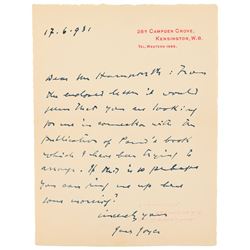 17.6.931
28B CAMPDEN GROVE,
KENSINGTON, W.8.
TEL. WESTERN
Dear Mr : From
the enclosed letter it would
seem that you are looking
for me in connection with the
publication of Pound's book
which I have been trying to
arrange. If this is so perhaps
you can ring me up here
some morning?
sincerely yours
James Joyce